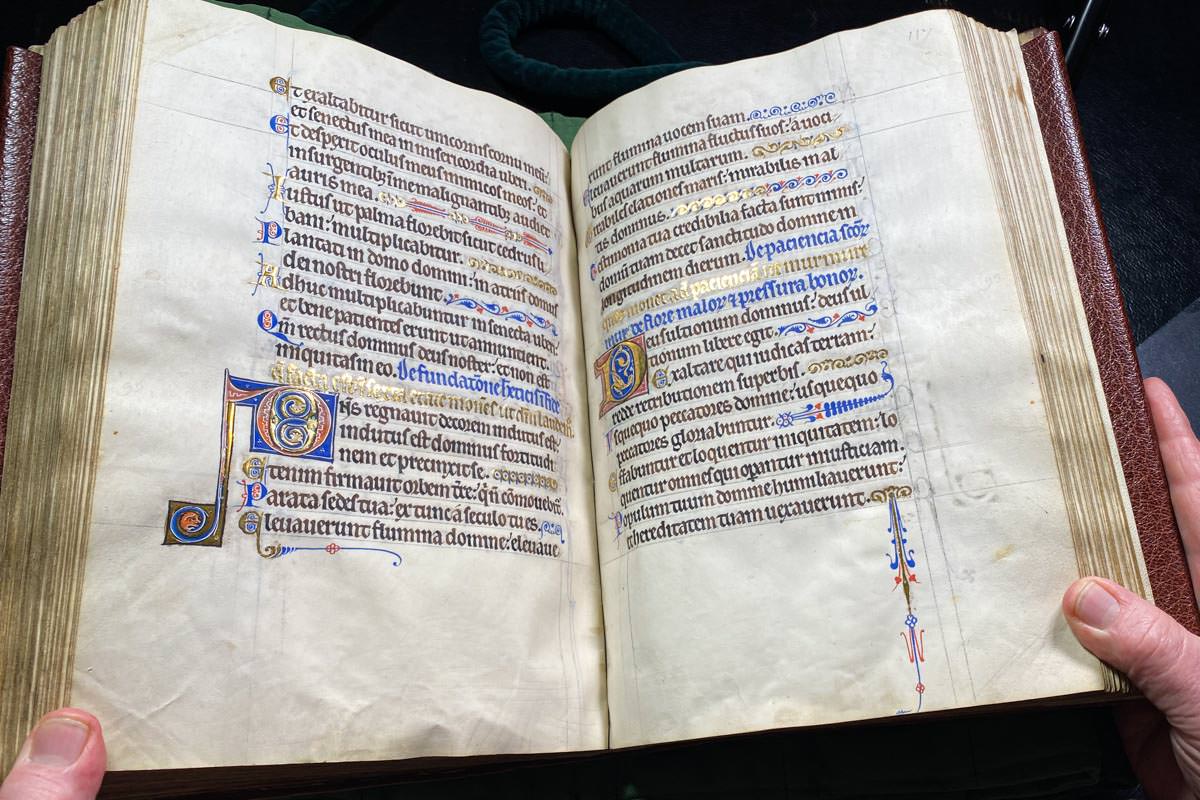 Et exaltabitur sicut unicornis cornu meū:
et senectus mea in misericordia uberi.
Et despexit oculus meus inimicos meos: et
insurgentibȝ in me malignantibȝ audiet
auris mea.
Iustus ut palma florebit: sicut cedrus li
bani multiplicabitur.
Plantati in domo domini: in atriis domus
dei nostri florebunt.
Adhuc multiplicabuntur in senecta uberi:
et bene patientes erunt ut annuntient.
Qm̄ rectus dominus deus noster: et non est
iniquitas in eo. De fundatōne
moises ut
Dn̄s regnauit decorem indutus est:
indutus est dominus fortitudi
nem et precinxit se.
Etenim firmauit orbem tr̄e: qui nō cōmouebit̄.
Parata sedes tua: ex tunc a seculo tu es.
Eleuauerunt flumina domine: eleuaue
117
runt flumina uocem suam.
Eleuauerunt flumina fluctus suos: a uoci
bus aquarum multarum.
Mirabiles elationes maris: mirabilis in al
tis dominus.
Testimonia tua credibilia facta sunt nimis:
domū tuam decet sanctitudo domine in
longitudinem dierum. De paciencia sc̄oꝝ
monet ad pacienciā ne murmure
mur de flore maloꝝ ⁊ pressura bonoꝝ.
Deus ultionum dominus: deus ul
tionum libere egit.
Exaltare qui iudicas terram:
redde retributionem superbis.
Usquequo peccatores domine: usquequo
peccatores gloriabuntur.
Effabuntur et loquentur iniquitatem: lo
quentur omnes qui opantur iniusticiam.
Populum tuum domine humiliauerunt:
et hereditatem tuam uexauerunt.